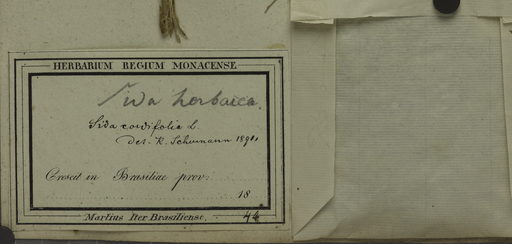 HERBARIUM REGIUM MONACENSE.
Sida herbacea.
Sida cordifolia L.
Det. K. Schumann 1891
Crescit in Brasiliae prov:
18
Martius Iter Brasiliense. 46